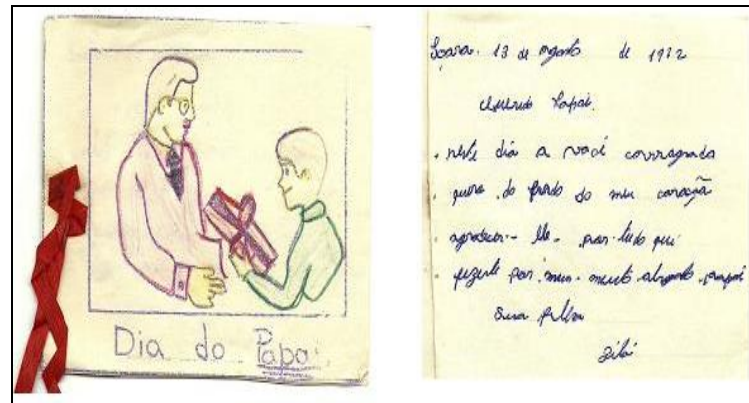 Dia do Papai
13 de agosto de 1972
Querido Papai.
neste dia a você consagrado
quero do fundo do meu coração
agradecer-lhe por tudo que
fizeste por mim muito obrigado papai
Sua filha